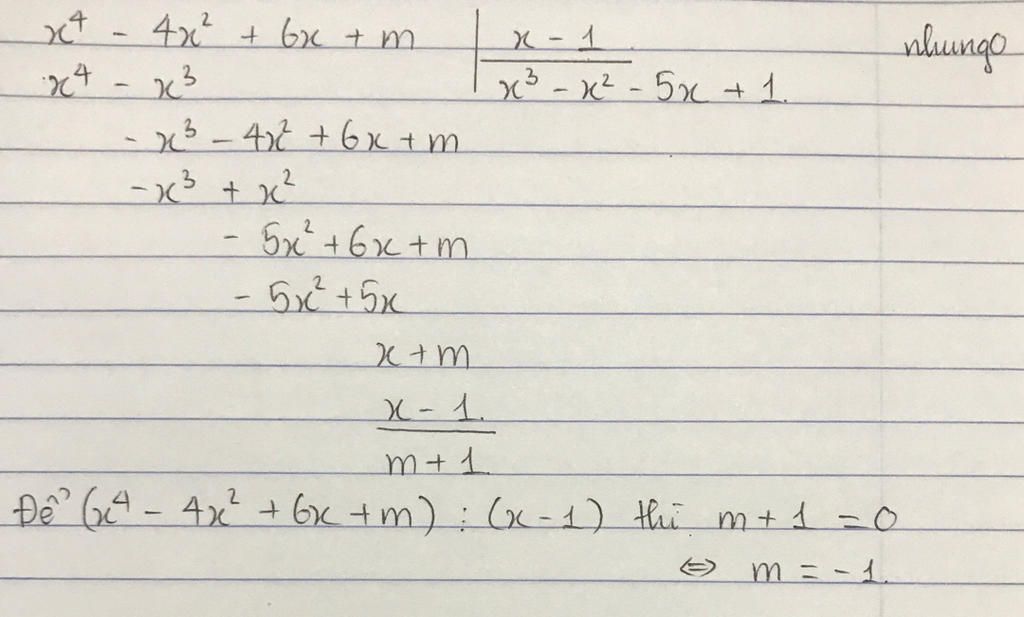 x⁴ - 4x² + 6x + m | x - 1 nhungo
x⁴ - x³ x³ - x² - 5x + 1.
- x³ - 4x² + 6x + m
-x³ + x²
- 5x² + 6x + m
- 5x² + 5x
x + m
x - 1.
m + 1.
Để (x⁴ - 4x² + 6x + m) : (x - 1) thì m + 1 = 0
⇔ m = -1.